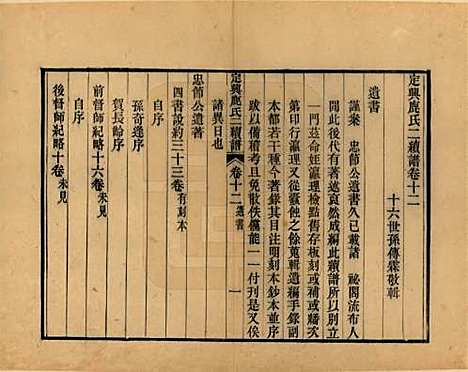 定興鹿氏二續譜卷十二
十六世孫傳霖敬輯
遺書
謹案　忠節公遺書久已載諸　祕閣流布人
間此後代有著述裒然成編此續譜所以別立
一門茲命姪瀛理檢點舊存板刻或補或續次
第印行瀛理又從蠹蝕之餘蒐輯遺編手錄副
本都若干種今著錄其目注明刻本鈔本並序
跋以備稽考且免散佚儻能一一付刊是又俟
定興鹿氏二續譜
卷十二　遺書
一
諸異日也
忠節公遺著
四書說約三十三卷有刻本
自序
孫奇逢序
賀長齡序
前督師紀略十六卷未見
自序
後督師紀略十卷未見